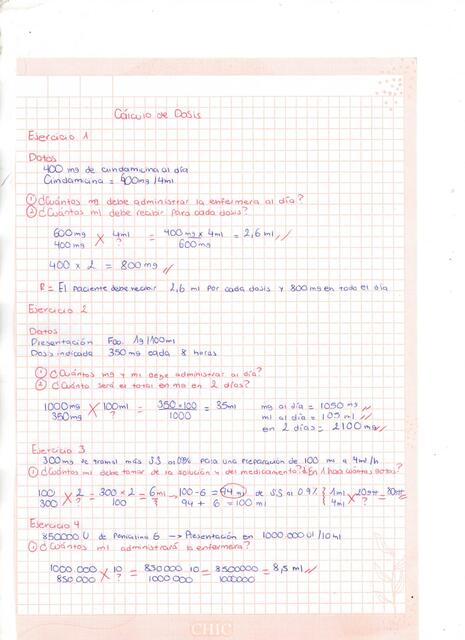 Cálculo de Dosis
Ejercicio 1
Datos
400 mg de clindamicina al día
Clindamicina = 600mg/4ml
① ¿Cuántos mg debe administrar la enfermera al día?
② ¿Cuántos ml debe recibir para cada dosis?
600mg × 4ml = 400 mg x 4ml = 2,6 ml //
400mg ? 600mg
400 x 2 = 800mg //
R = El paciente debe recibir 2,6 ml por cada dosis y 800mg en todo el día
Ejercicio 2
Datos
Presentación Fco. 1g/100ml
Dosis indicada 350mg cada 8 horas
① ¿Cuántos mg y ml debe administrar al día?
② ¿Cuánto será el total en mg en 2 días?
1000mg × 100ml = 350 x 100 = 35ml mg al día = 1050 mg //
350mg ? 1000 ml al día = 105 ml //
en 2 días = 2100mg //
Ejercicio 3
300mg de tramal más S.S al 0.9% para una preparación de 100 ml a 4ml/h
① ¿Cuántos ml debe tomar de la solución y del medicamento? ¿En 1 hora cuántas gotas?
100 × 2 = 300 x 2 = 6ml → 100-6 = 94 ml de S.S al 0.9%
300 ? 100 ? 94 + 6 = 100 ml
1ml × 20gtt = 80gtt
4ml ?
Ejercicio 4
850000 U de Penicilina G → Presentación en 1000.000 UI/10ml
① ¿Cuántos ml administrará la enfermera?
1000.000 × 10 = 850000 10 = 8500000 = 8,5 ml //
850.000 ? 1000.000 1000000
CHIC